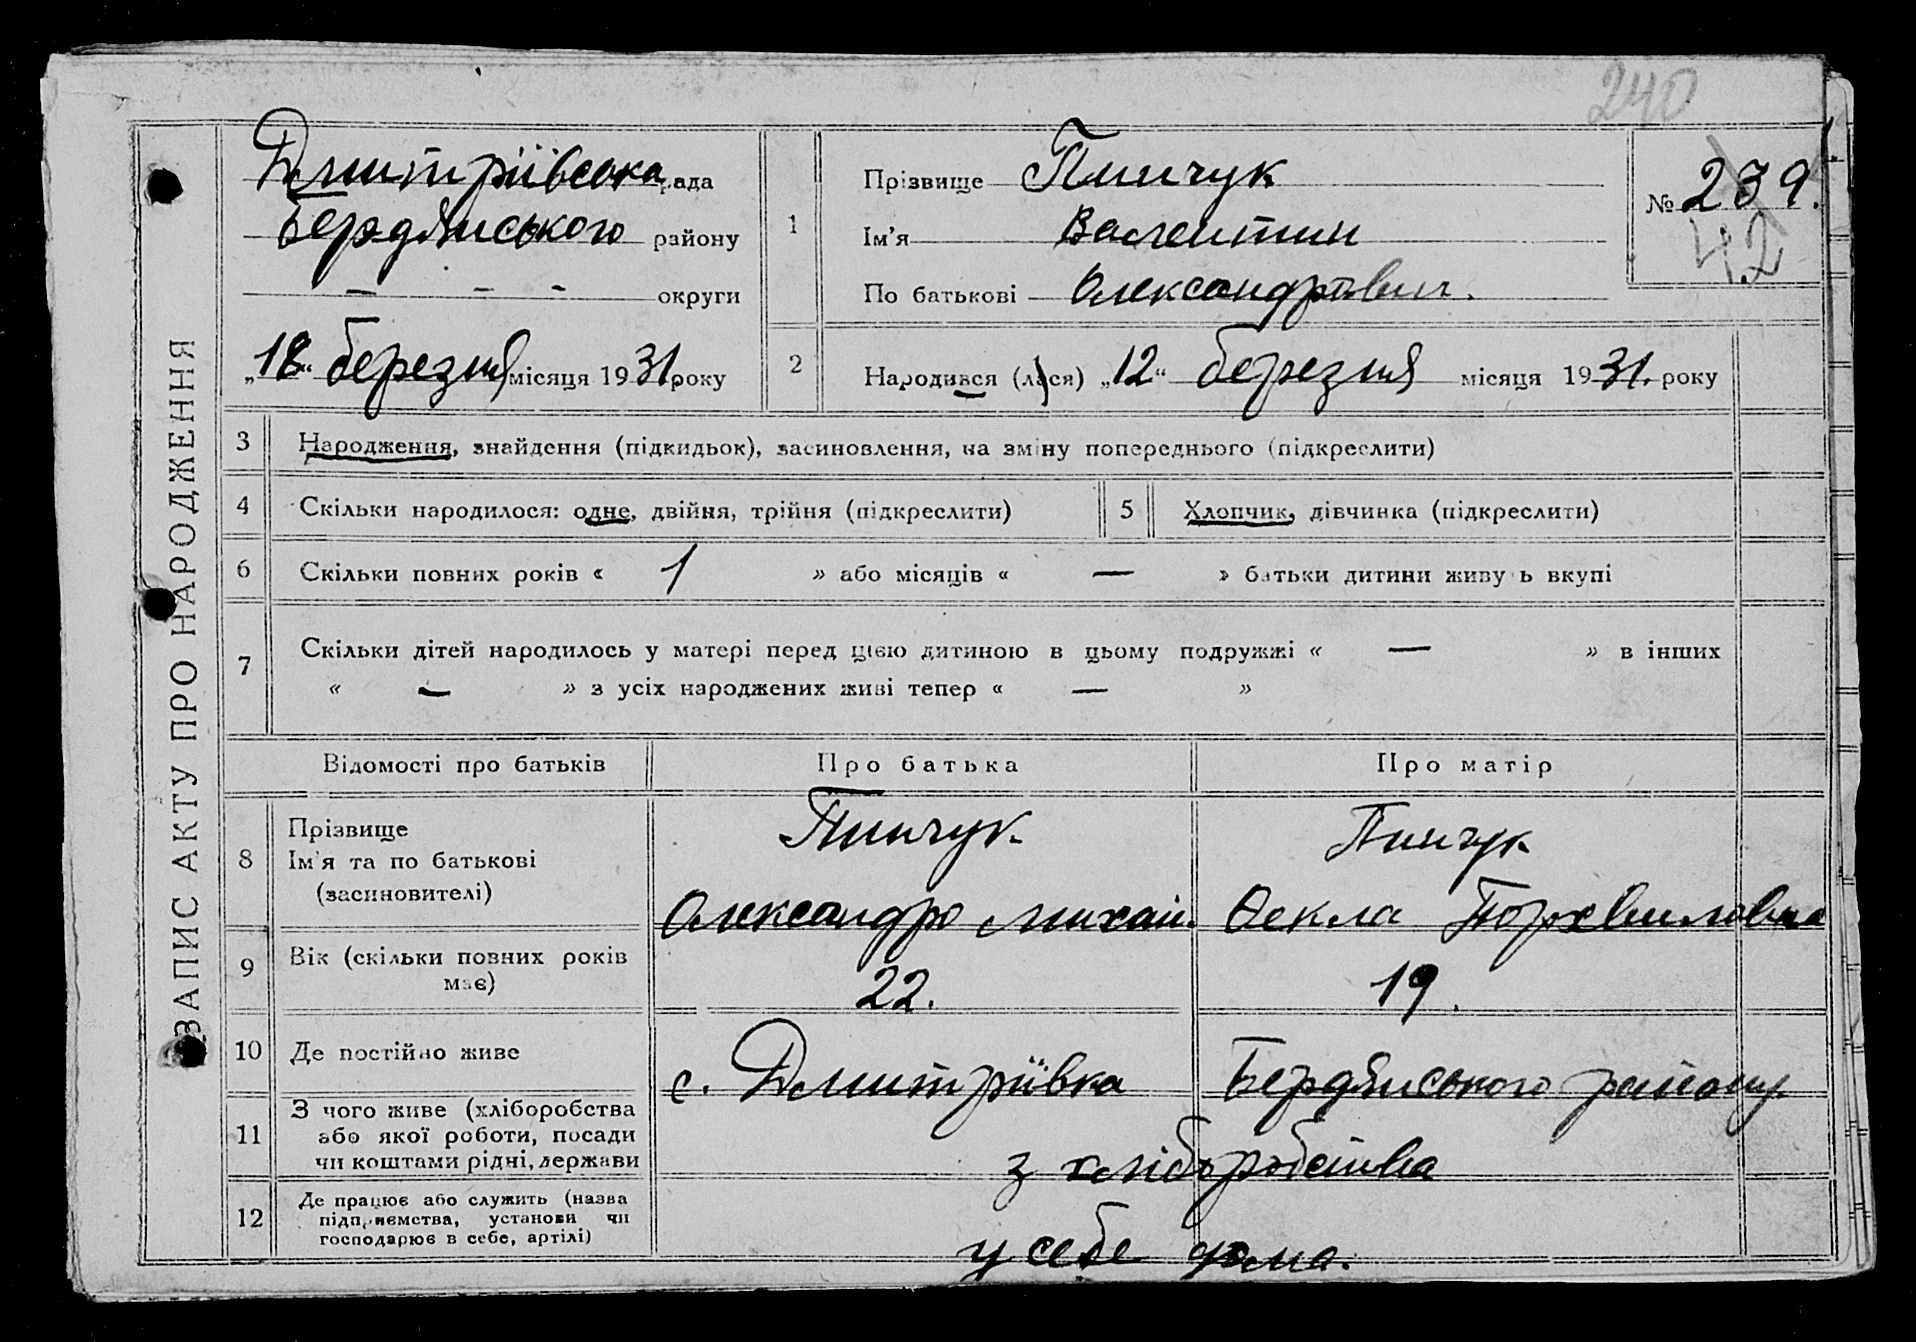 240
ЗАПИС АКТУ ПРО НАРОДЖЕННЯ
Дмитріївська рада
Бердянського району
— - - округи
„18“ березня місяця 1931 року
1
Прізвище Пинчук
Ім’я Валентин
По батькові Олександрович.
№ 239.
42
2
Народився (лася) „12“ березня місяця 1931. року
3 Народження, знайдення (підкидьок), засиновлення, на зміну попереднього (підкреслити)
4 Скільки народилося: одне, двійня, трійня (підкреслити) 5 Хлопчик, дівчинка (підкреслити)
6 Скільки повних років « 1 » або місяців « — » батьки дитини живуть вкупі
7 Скільки дітей народилось у матері перед цією дитиною в цьому подружжі « — » в інших
« — » з усіх народжених живі тепер « — »
Відомості про батьків Про батька Про матір
8 Прізвище Пинчук Пинчук
Ім’я та по батькові
(засиновителі) Олександро Михай. Фекла
9 Вік (скільки повних років має) 22. 19.
10 Де постійно живе с. Дмитріївка Бердянського району.
11 З чого живе (хліборобства
або якої роботи, посади
чи коштами рідні, держави з хліборобства
12 Де працює або служить (назва
підприємства, установи чи
господарює в себе, артілі) у себе дома.